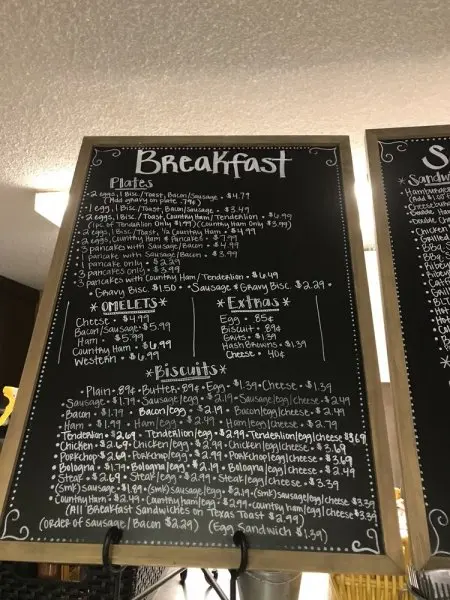 Breakfast
Plates
• 2 eggs, 1 Bisc./Toast, Bacon/Sausage • $4.79
(Add gravy on plate .79¢)
1 egg, 1 Bisc./Toast, Bacon/Sausage • $3.49
2 eggs, 1 Bisc/Toast, Country Ham/Tenderlion • $6.99
(1 pc of Tenderlion Only $1.99) (Country Ham Only $3.99)
2 eggs, 1 Bisc/Toast, 1/2 Country Ham • $4.99
2 eggs, Country Ham & Pancakes •
3 pancakes with Sausage/Bacon • $4.99
1 pancake with Sausage/Bacon • $3.99
1 pancake only • $2.29
3 pancakes only • $3.99
3 pancakes with Country Ham/Tenderlion • $6.49
• Gravy Bisc. $1.50 • Sausage & Gravy Bisc. $2.29 •
* OMELETS *
Cheese • $4.99
Bacon/Sausage • $5.99
Ham • $5.99
Country Ham • $6.99
Western • $6.99
* Extras *
Egg • 85¢
Biscuit • 89¢
Grits • $1.39
Hash Browns • $1.39
Cheese • 40¢
* Biscuits *
• Plain • 89¢ • Butter • 89¢ • Egg • $1.39 • Cheese • $1.39
• Sausage • $1.79 • Sausage/egg • $2.19 • Sausage/egg/cheese • $2.49
• Bacon • $1.79 • Bacon/egg • $2.19 • Bacon/egg/cheese • $2.49
• Ham • $1.99 • Ham/egg • $2.49 • Ham/egg/cheese • $2.79
• Tenderlion • $2.69 • Tenderlion/egg • $2.99 • Tenderlion/egg/cheese $3.69
• Chicken • $2.69 • Chicken/egg • $2.99 • Chicken/egg/cheese • $3.69
• Porkchop • $2.69 • Porkchop/egg • $2.99 • Porkchop/egg/cheese • $3.69
• Bologna • $1.79 • Bologna/egg • $2.19 • Bologna/egg/cheese • $2.49
• Steak • $2.69 • Steak/egg • $2.99 • Steak/egg/cheese • $3.39
• (Smk) Sausage • $1.89 • (smk) sausage/egg • $2.19 • (smk) sausage/egg/cheese $3.39
• Country Ham • $2.49 • Country ham/egg • $2.99 • country ham/egg/cheese $3.39
(All Breakfast Sandwiches on Texas Toast $2.99)
(order of sausage/Bacon $2.29) (Egg Sandwich $1.39)
* Sandw
• Hamburger
(Add $1.00
• Chicken
• Grilled